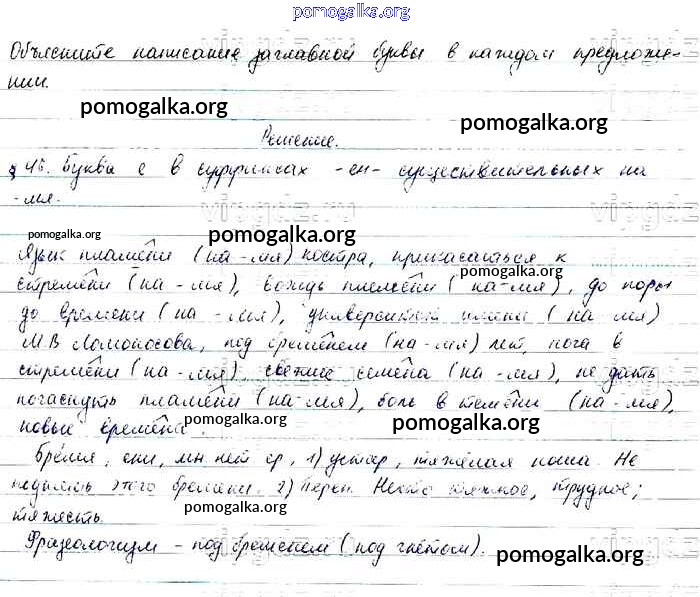 pomogalka.org
Объясните написание заглавной буквы в каждом предложе-
нии.
pomogalka.org
pomogalka.org
Решение.
§ 46. Буква е в суффиксах -ен- существительных на
-мя.
vipgdz.ru
pomogalka.org
pomogalka.org
Язык пламени (на -мя) костра, прикасаться к
pomogalka.org
стремени (на -мя), вождь племени (на -мя), до поры
до времени (на -мя), университет имени (на -мя)
М.В Ломоносова, под бременем (на -мя) лет, нога в
pomogalka.org
стремени (на -мя), свежие семена (на -мя), не дать
погаснуть пламени (на -мя), боль в темени (на -мя),
pomogalka.org
pomogalka.org
новые времена.
Бремя, ени, мн. нет ср, 1) устар, тяжёлая ноша. Не
поднимать этого бремени. 2) Перен. Нечто тяжкое, трудное;
тяжесть.
Фразеологизм - под бременем (под гнётом).
pomogalka.org